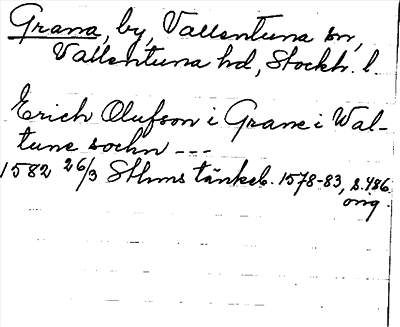 Grana, by, Vallentuna sn,
Vallentuna hd, Stockh. l.
Erich Olufson i Grane i Wal-
tune sochn ---
1582 26/3 Sthms tänkeb. 1578-83, s. 486.
orig.